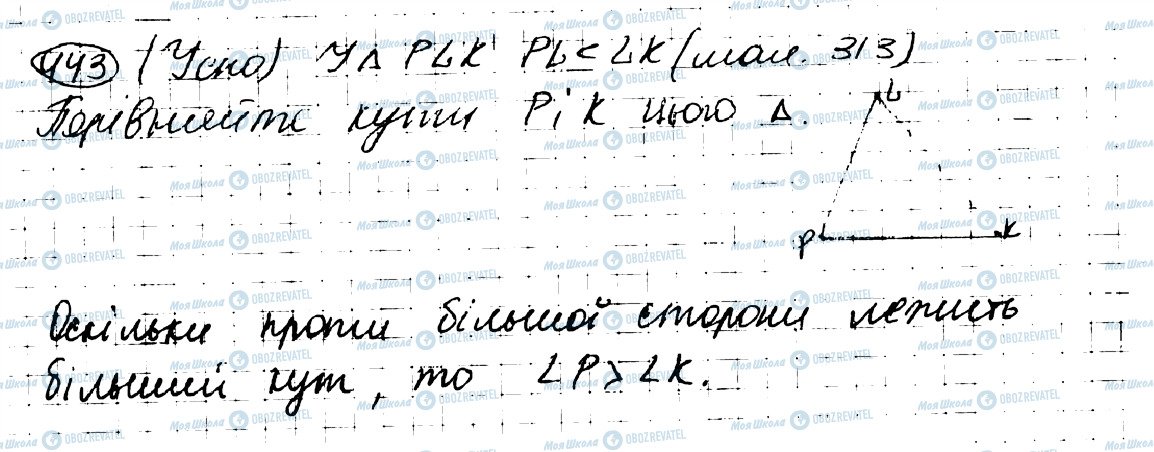 443 (Усно) У Δ PLK PL < LK (мал. 313)
Порівняйте кути P і K цього Δ.
L
P K
Оскільки проти більшої сторони лежить
більший кут, то ∠P > ∠K.